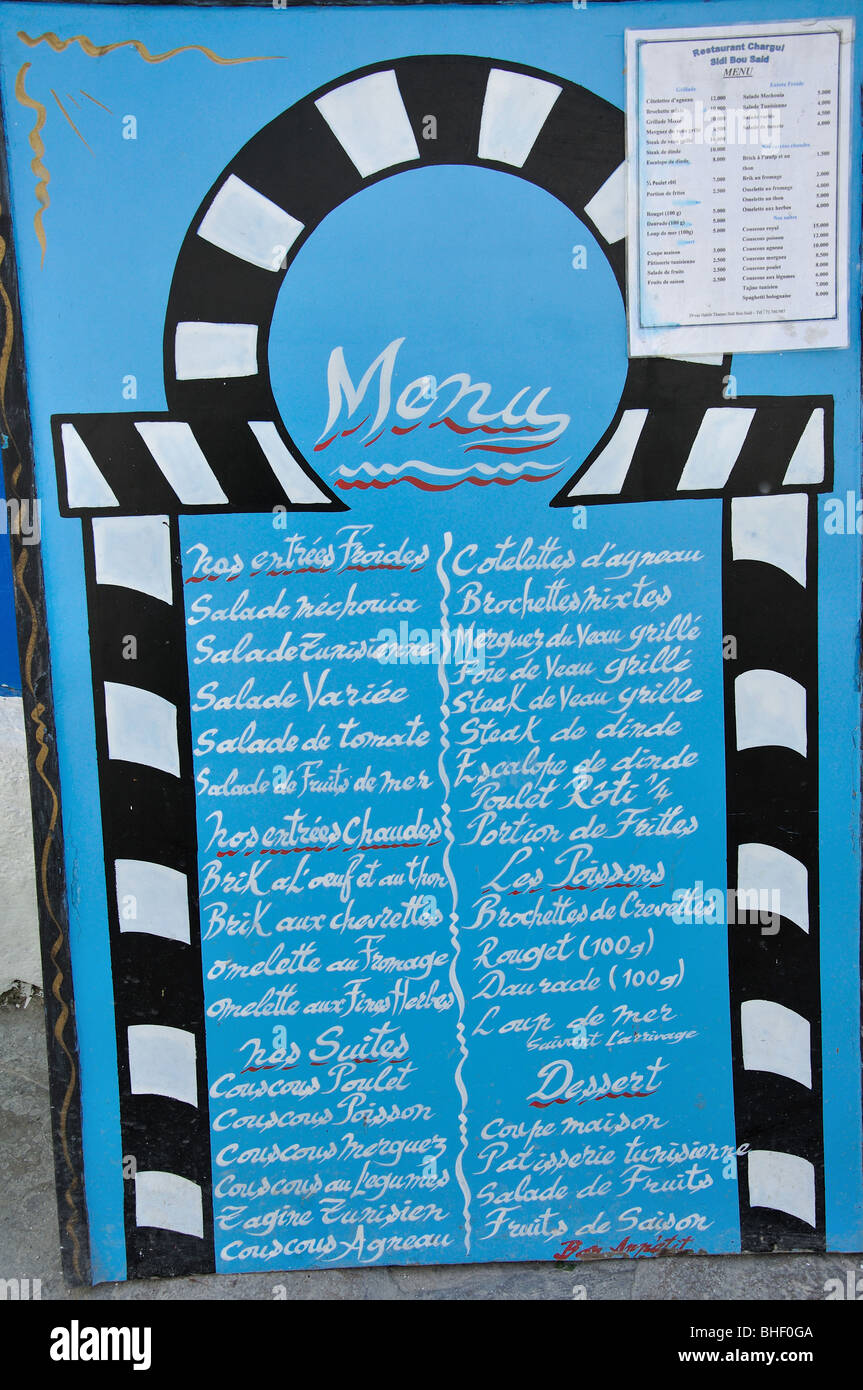 Menu
nos entrées Froides
Salade méchouia
Salade Tunisienne
Salade Variée
Salade de tomate
Salade de Fruits de mer
nos entrées Chaudes
Brik a L'oeuf et au thon
Brik aux chevrettes
omelette au Fromage
omelette aux Fines Herbes
nos Suites
Couscous Poulet
Couscous Poisson
Couscous merguez
Couscous au Legumes
Tagine Tunisien
Couscous Agneau
Cotelettes d'agneau
Brochettes mixtes
Merguez du Veau grillé
Foie de Veau grillé
Steak de Veau grille
Steak de dinde
Escalope de dinde
Poulet Rôti 1/4
Portion de Frittes
Les Poissons
Brochettes de Crevettes
Rouget (100g)
Daurade (100g)
Loup de mer
Suivant L'arrivage
Dessert
Coupe maison
Patisserie tunisienne
Salade de Fruits
Fruits de Saison
Bon Appétit
Restaurant Chargui
Sidi Bou Said
MENU
Grillade
Côtelettes d'agneau 12.000
Brochette mixte
Grillade Mixte
Merguez de veau grillé
Steak de veau
Steak de dinde 10.000
Escalope de dinde 8.000
Poulet rôti 7.000
Portion de frites 2.500
Rouget (100 g) 5.000
Daurade (100 g) 5.000
Loup de mer (100g) 5.000
Coupe maison 3.000
Pâtisserie tunisienne 2.500
Salade de fruits 2.500
Fruits de saison 2.500
Entrée Froide
Salade Mechouia 5.000
Salade Tunisienne 4.000
Salade variée 4.500
Salade de 4.000
Brick à l'œufp et au 1.500
thon
Brik au fromage 2.000
Omelette au fromage 4.000
Omelette au thon 5.000
Omelette aux herbes 4.000
Nos suites
Couscous royal 15.000
Couscous poisson 12.000
Couscous agneau 10.000
Couscous merguez 8.500
Couscous poulet 8.000
Couscous aux légumes 6.000
Tajine tunisien 7.000
Spaghetti bolognaise 8.000
alamy
Image ID: BHF0GA
www.alamy.com